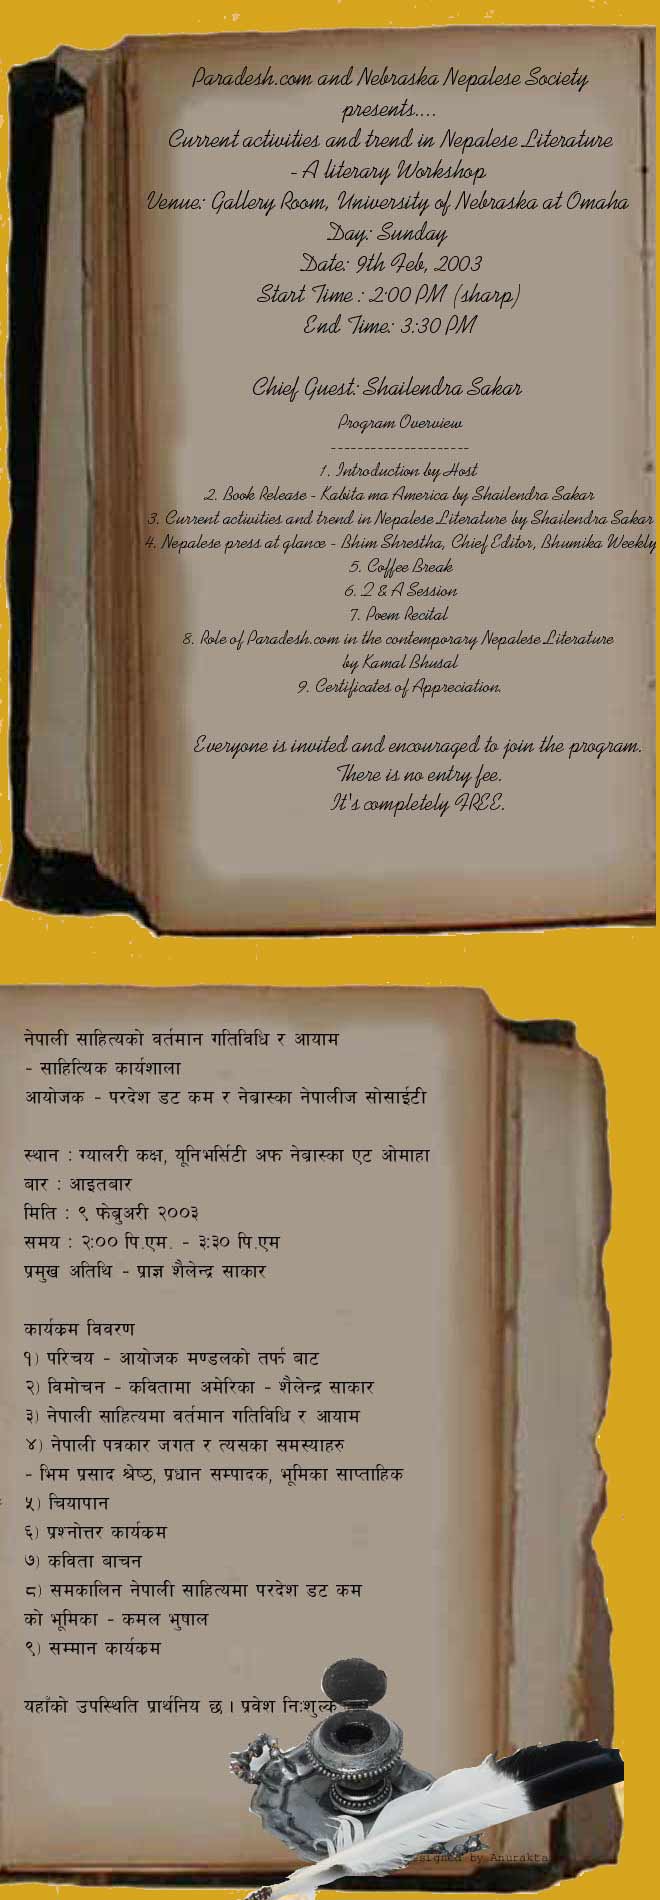 Paradesh.com and Nebraska Nepalese Society
presents....
Current activities and trend in Nepalese Literature
- A literary Workshop
Venue: Gallery Room, University of Nebraska at Omaha
Day: Sunday
Date: 9th Feb, 2003
Start Time : 2:00 PM (sharp)
End Time: 3:30 PM
Chief Guest: Shailendra Sakar
Program Overview
---------------------
1. Introduction by Host
2. Book Release - Kabita ma America by Shailendra Sakar
3. Current activities and trend in Nepalese Literature by Shailendra Sakar
4. Nepalese press at glance - Bhim Shrestha, Chief Editor, Bhumika Weekly
5. Coffee Break
6. Q & A Session
7. Poem Recital
8. Role of Paradesh.com in the contemporary Nepalese Literature
by Kamal Bhusal
9. Certificates of Appreciation.
Everyone is invited and encouraged to join the program.
There is no entry fee.
It's completely FREE.
नेपाली साहित्यको वर्तमान गतिविधि र आयाम
- साहित्यिक कार्यशाला
आयोजक - परदेश डट कम र नेब्रास्का नेपालीज सोसाईटी
स्थान : ग्यालरी कक्ष, यूनिभर्सिटी अफ नेब्रास्का एट ओमाहा
बार : आइतबार
मिति : ९ फेब्रुअरी २००३
समय : २:०० पि.एम. - ३:३० पि.एम
प्रमुख अतिथि - प्राज्ञ शैलेन्द्र साकार
कार्यक्रम विवरण
१) परिचय - आयोजक मण्डलको तर्फ बाट
२) विमोचन - कवितामा अमेरिका - शैलेन्द्र साकार
३) नेपाली साहित्यमा वर्तमान गतिविधि र आयाम
४) नेपाली पत्रकार जगत र त्यसका समस्याहरु
- भिम प्रसाद श्रेष्ठ, प्रधान सम्पादक, भूमिका साप्ताहिक
५) चियापान
६) प्रश्नोत्तर कार्यक्रम
७) कविता बाचन
८) समकालिन नेपाली साहित्यमा परदेश डट कम
को भूमिका - कमल भुषाल
९) सम्मान कार्यक्रम
यहाँको उपस्थिति प्रार्थनिय छ । प्रवेश नि:शुल्क
by Anurakta